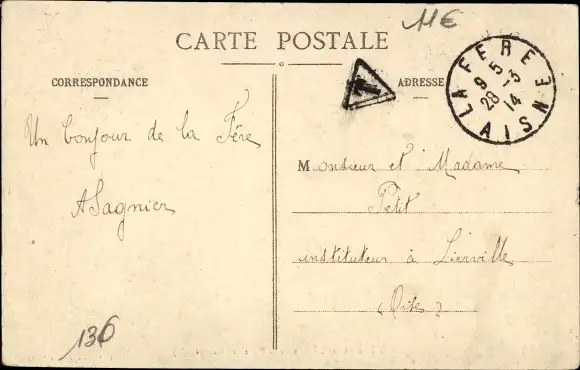 11€
CARTE POSTALE
CORRESPONDANCE
ADRESSE
T
LA FERE
9 5
28 - 3
14
AISNE
Un bonjour de la Fère
ASagnier
Monsieur et Madame
Petit
instituteur à Lierville
(Oise)
136